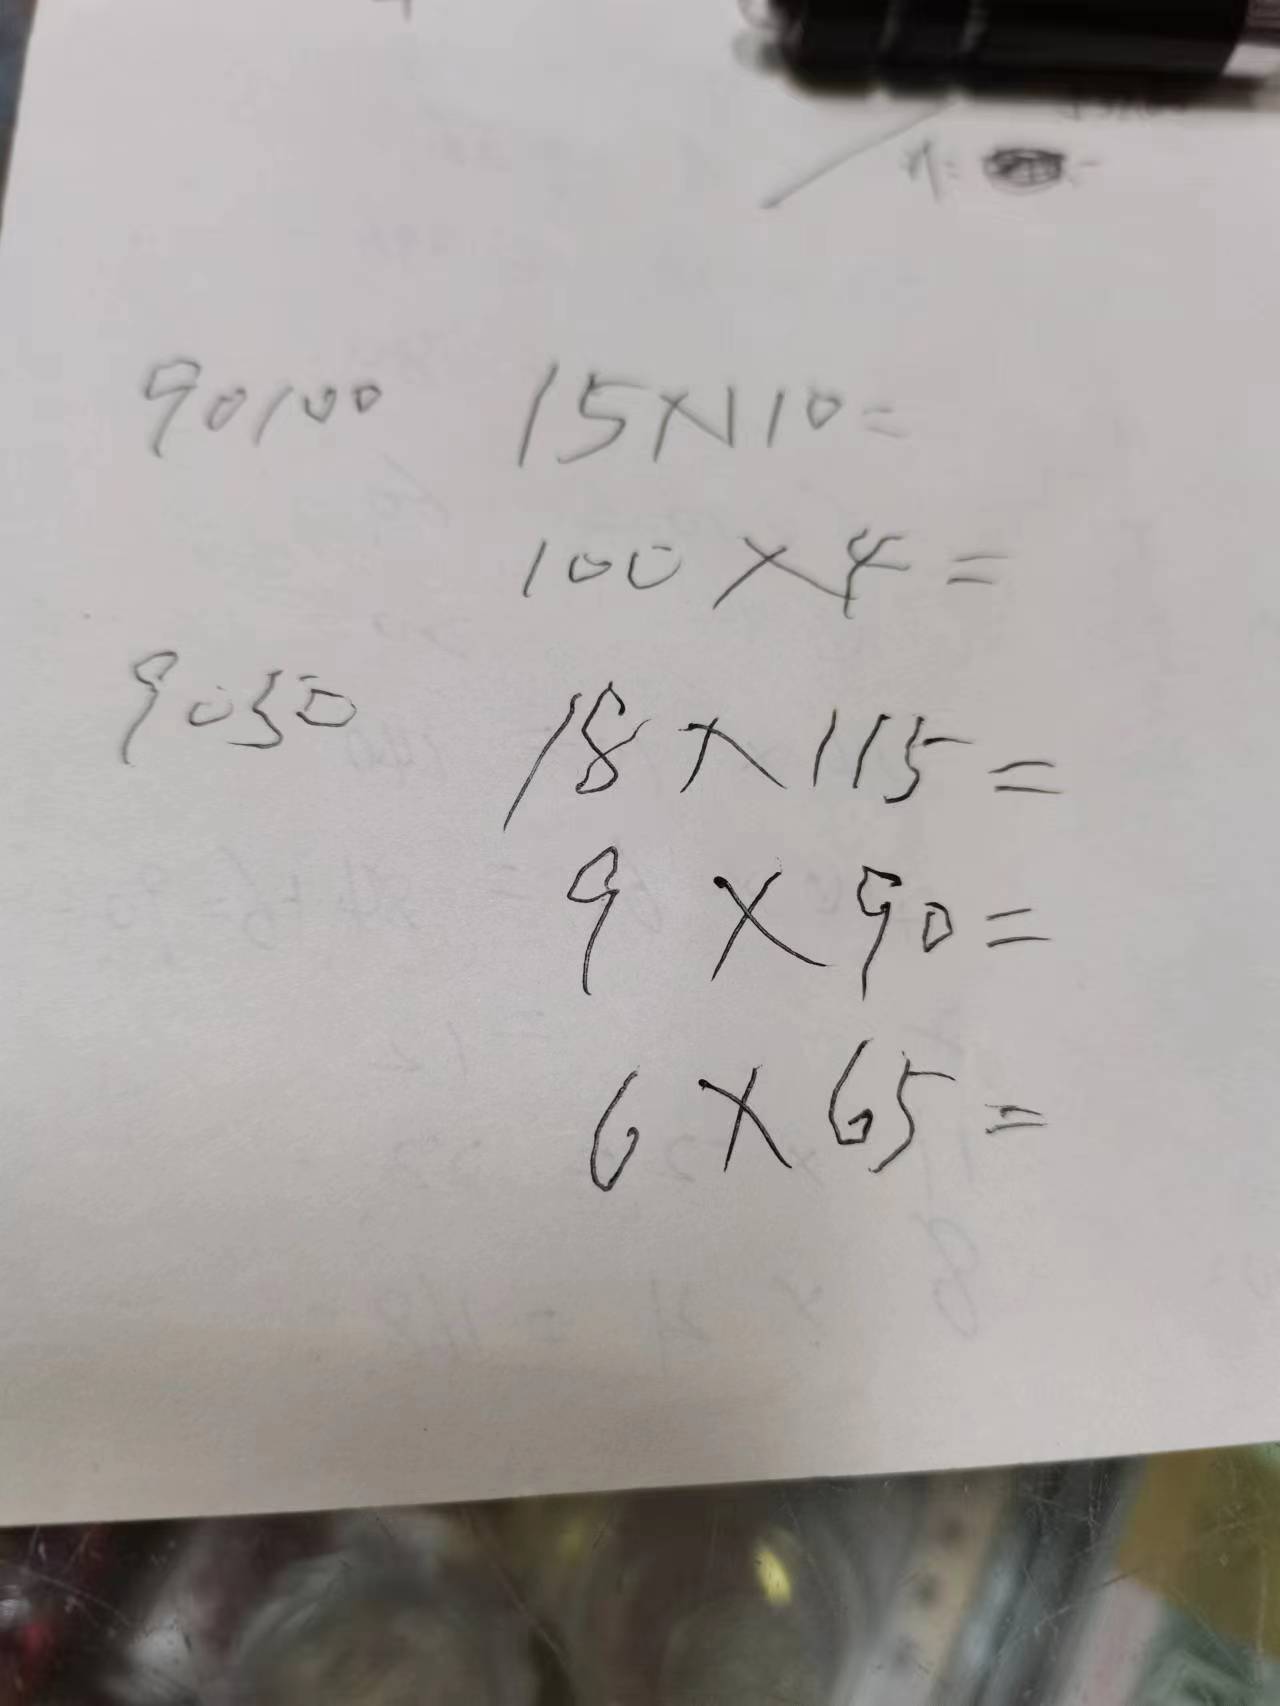 90100 15×110=
100×4=
9050 18×115=
9×90=
6×65=